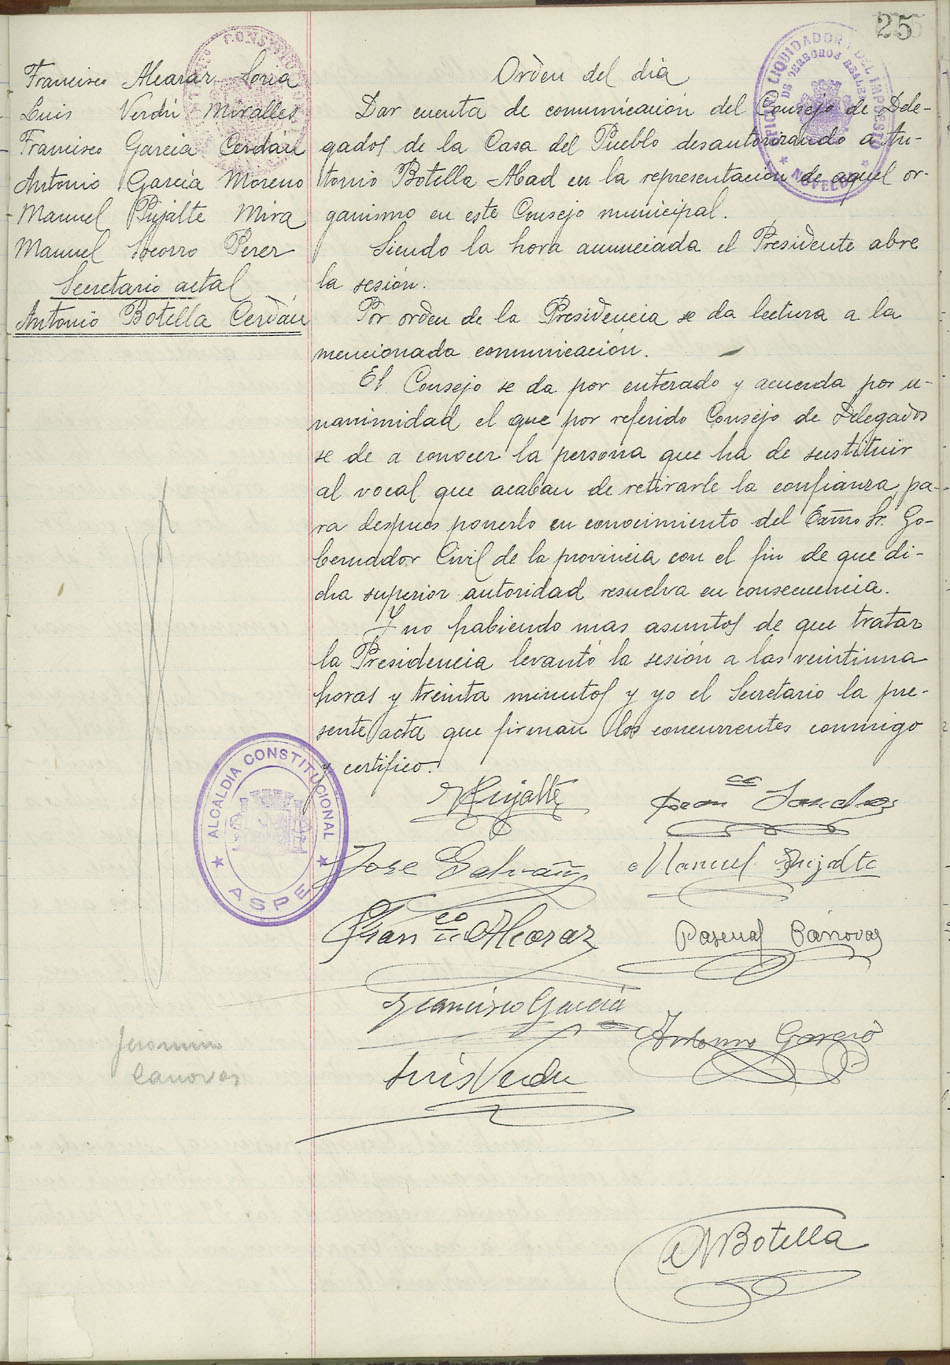 25
Francisco Alcaraz Soria
Luis Verdú Miralles
Francisco García Cerdán
Antonio García Moreno
Manuel Pujalte Mira
Manuel Socorro Perez
Secretario actal
Antonio Botella Cerdán
Orden del dia
Dar cuenta de comunicación del Consejo de Dele-
gados de la Casa del Pueblo desautorizando a An-
tonio Botella Abad en la representación de aquel or-
ganismo en este Consejo municipal.
Siendo la hora anunciada el Presidente abre
la sesión.
Por orden de la Presidencia se da lectura a la
mencionada comunicación.
El Consejo se da por enterado y acuerda por u-
nanimidad el que por referido Consejo de Delegados
se de a conocer la persona que ha de sustituir
al vocal que acaban de retirarle la confianza, pa-
ra despues ponerlo en conocimiento del Exmo Sr. Go-
bernador Civil de la provincia con el fin de que di-
cha superior autoridad resuelva en consecuencia.
Y no habiendo mas asuntos de que tratar
la Presidencia levantó la sesión a las veintiuna
horas y treinta minutos y yo el Secretario la pre-
sente acta que firman los concurrentes conmigo
y certifico.
ALCALDIA CONSTITUCIONAL
ASPE
OFICINA LIQUIDADORA DEL IMPUESTO
DE DERECHOS REALES
NOVELDA
Pujalte
Franco Sanchez
Jose Galvañ
Manuel Pujalte
Franco Alcaraz
Pascual Cánovas
Francisco García
Antonio Garcia
Luis Verdu
Jeronimo
Canovas
A Botella